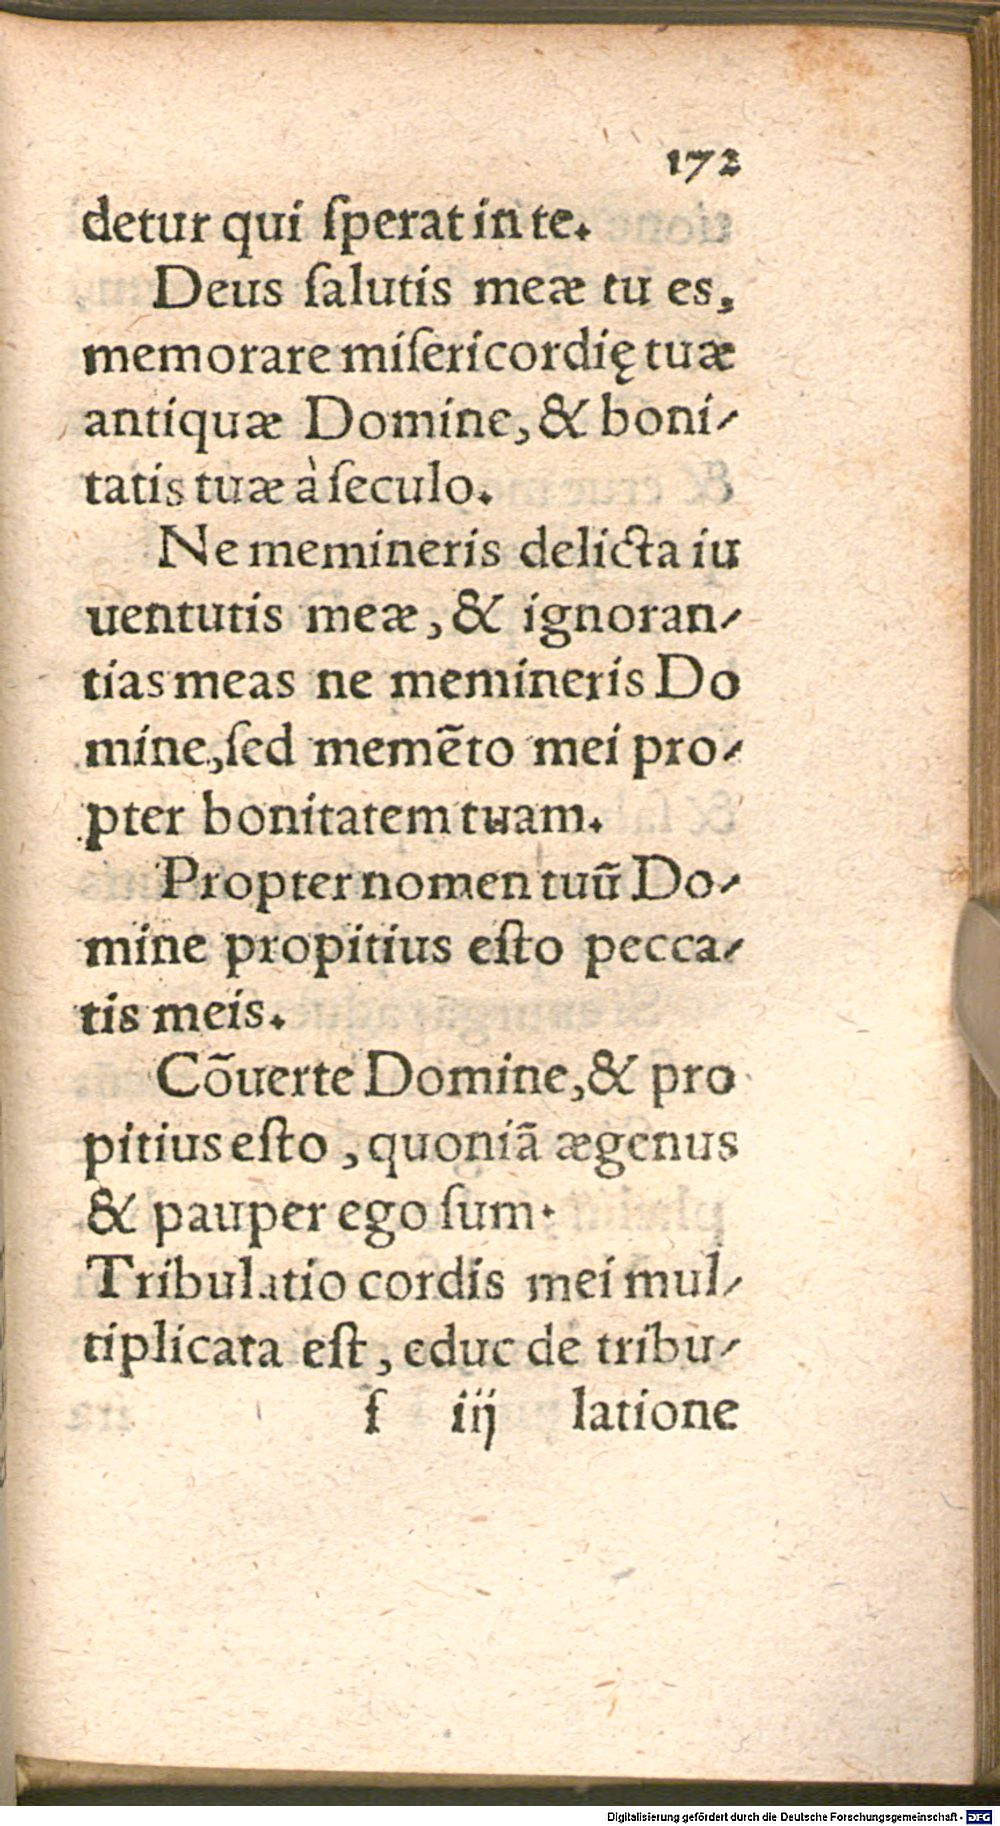 172
detur qui ſperat in te.
Deus ſalutis meæ tu es,
memorare miſericordię tuæ
antiquæ Domine, & boni-
tatis tuæ à ſeculo.
Ne memineris delicta iu
uentutis meæ, & ignoran-
tias meas ne memineris Do
mine, ſed memẽto mei pro-
pter bonitatem tuam.
Propter nomen tuũ Do-
mine propitius eſto pecca-
tis meis.
Cõuerte Domine, & pro
pitius eſto, quoniã ægenus
& pauper ego ſum.
Tribulatio cordis mei mul-
tiplicata eſt, educ de tribu-
ſ iij latione
Digitalisierung gefördert durch die Deutsche Forschungsgemeinschaft - DFG